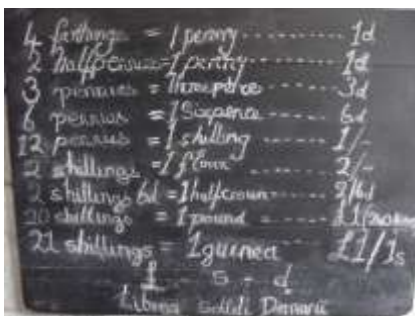 4 farthings = 1 penny ---------- 1d
2 halfpennies = 1 penny ---------- 1d
3 pennies = threepence ------ 3d
6 pennies = 1 Sixpence ------ 6d
12 pennies = 1 shilling ------ 1/-
2 shillings = 1 florin ------ 2/-
2 shillings 6d = 1 halfcrown ------ 2/6d
20 shillings = 1 pound ------ £1
21 shillings = 1 guinea £1/1s
£ - s - d
Solidi Denarii